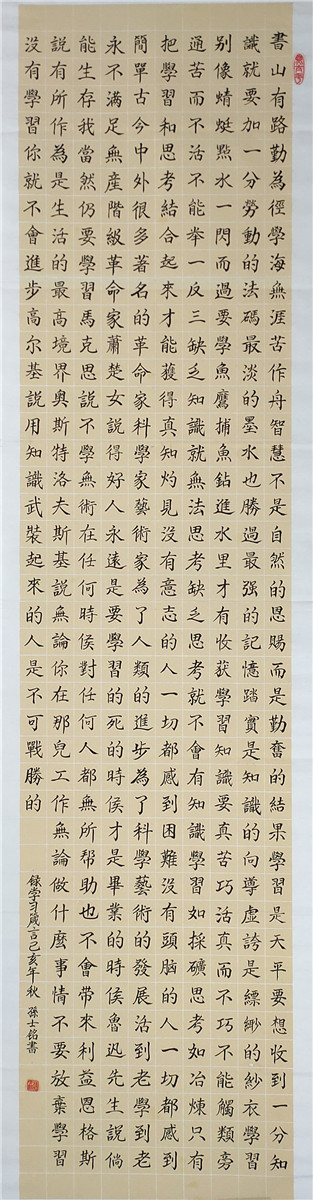 書山有路勤為徑學海無涯苦作舟智慧不是自然的恩賜而是勤奮的結果學習是天平要想收到一分知
識就要加一分勞動的法碼最淡的墨水也勝過最强的記憶踏實是知識的向導虛誇是縹緲的紗衣學習
别像蜻蜓點水一閃而過要學魚鷹捕魚鉆進水里才有收获學習知識要真苦巧活真而不巧不能觸類旁
通苦而不活不能舉一反三缺乏知識就無法思考缺乏思考就不會有知識學習如採礦思考如冶煉只有
把學習和思考結合起來才能獲得真知灼見沒有意志的人一切都感到困難沒有頭腦的人一切都感到
簡單古今中外很多著名的革命家科學家藝術家為了人類的進步為了科學藝術的發展活到老學到老
永不滿足無産階級革命家蕭楚女說得好人永遠是要學習的死的時侯才是畢業的時侯魯迅先生説倘
能生存我當然仍要學習馬克思説不學無術在任何時侯對任何人都無所帮助也不會帶來利益恩格斯
説有所作為是生活的最高境界奥斯特洛夫斯基説無論你在那皃工作無論做什麼事情不要放棄學習
沒有學習你就不會進步高尔基説用知識武裝起來的人是不可戰勝的
錄学习箴言己亥年秋 孫士銘書